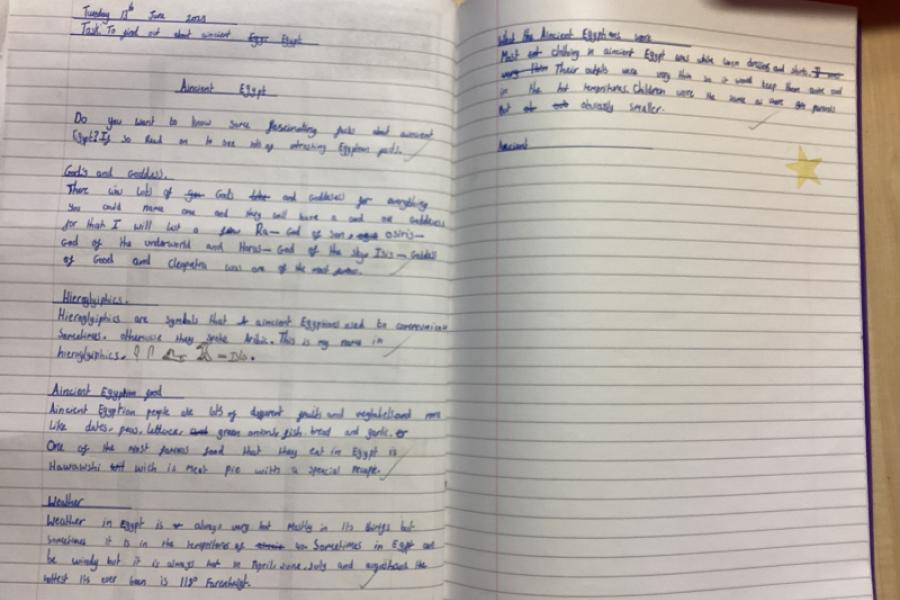 Tuesday 13th June 2023
Task: To find out about aincient Egypt
Aincient Egypt
Do you want to know some fascinating facts about aincient
Egypt? If so Read on to see lots of intresting Egyptian facts.
God's and Goddess.
There was lots of Gods and Goddeses for everything
you could name one and they will have a God or Goddess
for that I will list a few Ra- God of sun, osiris-
God of the underworld and Horus- God of the sky Isis - Goddess
of Good and Cleopatra was one of the most
Hieroglyiphics.
Hieroglyiphics are symbols that aincient Egyptians used to communicate
Sometimes. otherwise they spoke Aribic. This is my name in
hieroglyiphics.
Aincient Egyptian food
Aincient Egyptian people ate lots of different fruits and vegtabels and more
Like dates, peas, lettuce, green onions, fish, bread and garlic.
One of the most famous food that they eat in Egypt is
Hawawshi wich is meat pie with a special recipe.
Weather
Weather in Egypt is always very hot Mostly in 118 things but
Sometimes it is in the tempritures of Sometimes in Egypt can
be windy but it is always hot in April, June, July and august and the
hottest its ever been is 118° Farenheight.
What the Aincient Egyptians wore
Most clothing in aincient Egypt was white linen dresses and skirts.
Their outfits were very thin so it would keep them safe and
in the hot tempritures. Children wore the same as there parents
But obviously smaller.
Aincient